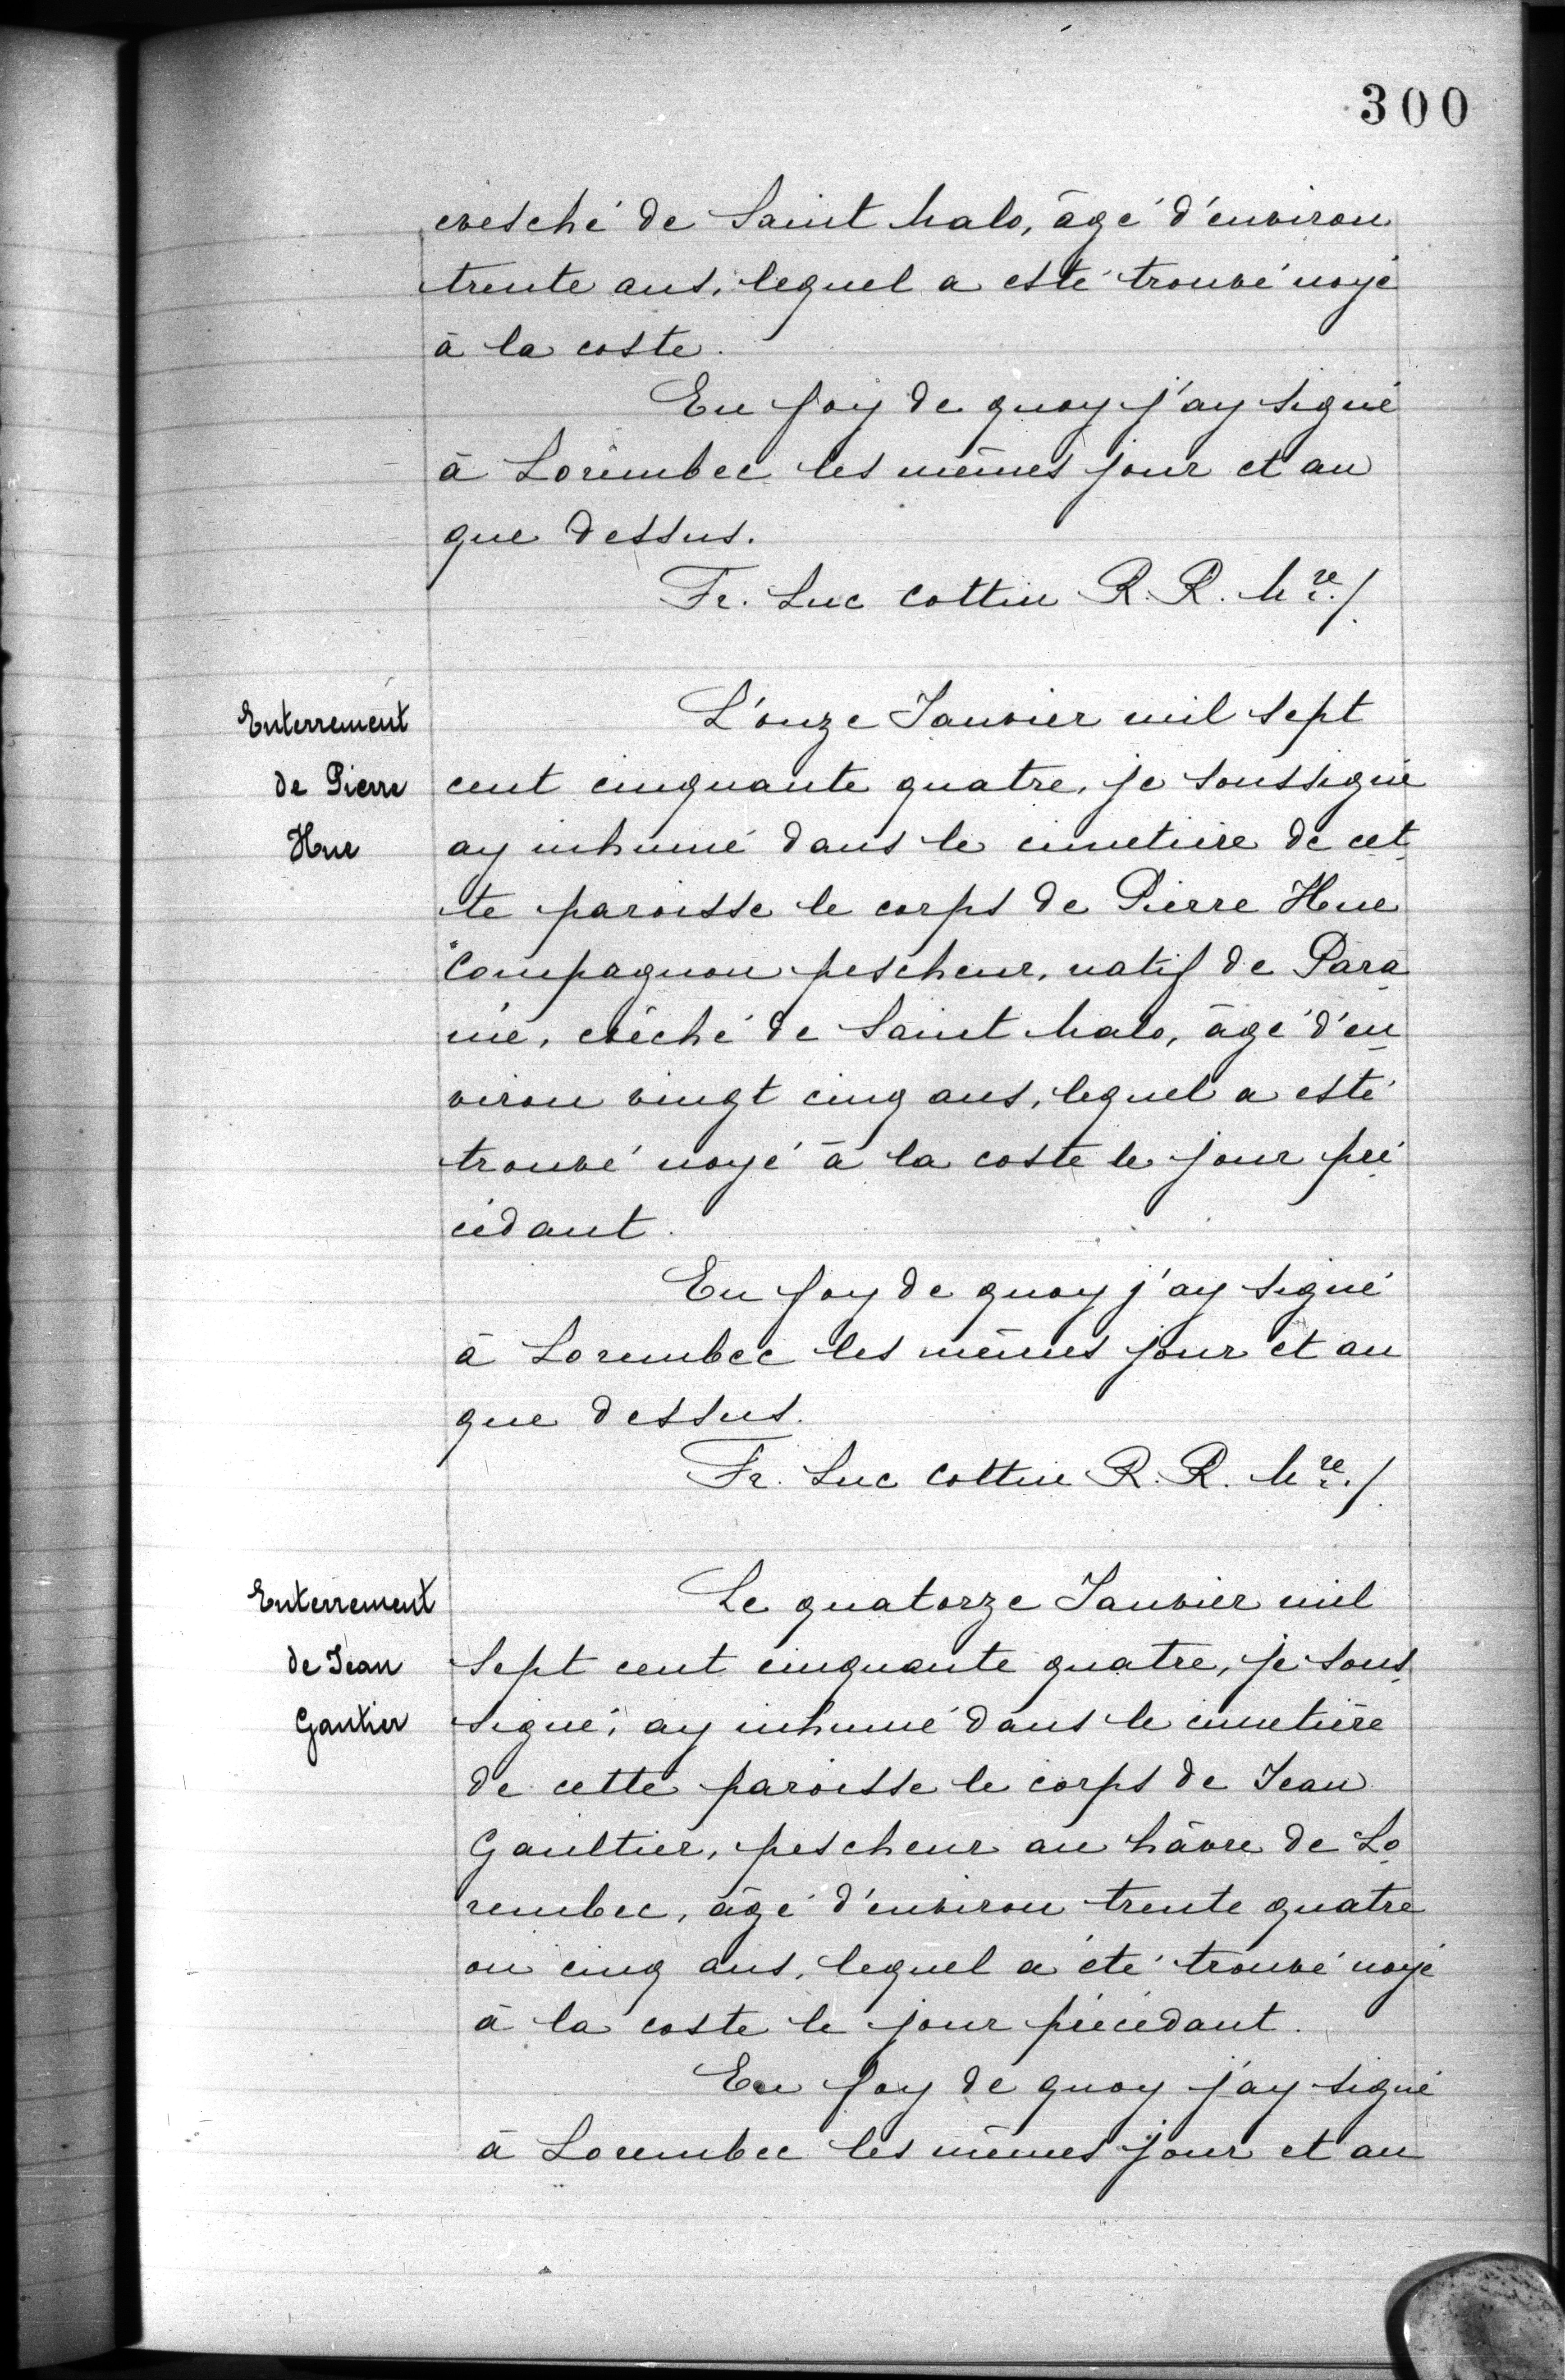 300
evesché de Saint Malo, âgé d'environ
trente ans, lequel a esté trouvé noyé
à la coste.
En foy de quoy j'ay signé
à Lorembec les mêmes jour et an
que dessus.
Fr. Luc Cottin R. R. Mre./.
Enterrement
de Pierre
Hue
L'onze Janvier mil sept
cent cinquante quatre, je soussigné
ay inhumé dans le cimetière de cet
te paroisse le corps de Pierre Hue
Compagnon pescheur, natif de Para
mé, evêché de Saint Malo, âgé d'en
viron vingt cinq ans, lequel a esté
trouvé noyé à la coste le jour pré
cédant.
En foy de quoy j'ay signé
à Lorembec les mêmes jour et an
que dessus.
Fr. Luc Cottin R. R. Mre./.
Enterrement
de Jean
Gautier
Le quatorze Janvier mil
sept cent cinquante quatre, je sous
signé, ay inhumé dans le cimetière
de cette paroisse le corps de Jean
Gaultier, pescheur au hâvre de Lo
rembec, âgé d'environ trente quatre
ou cinq ans, lequel a été trouvé noyé
à la coste le jour précédant.
En foy de quoy j'ay signé
à Lorembec les mêmes jour et an